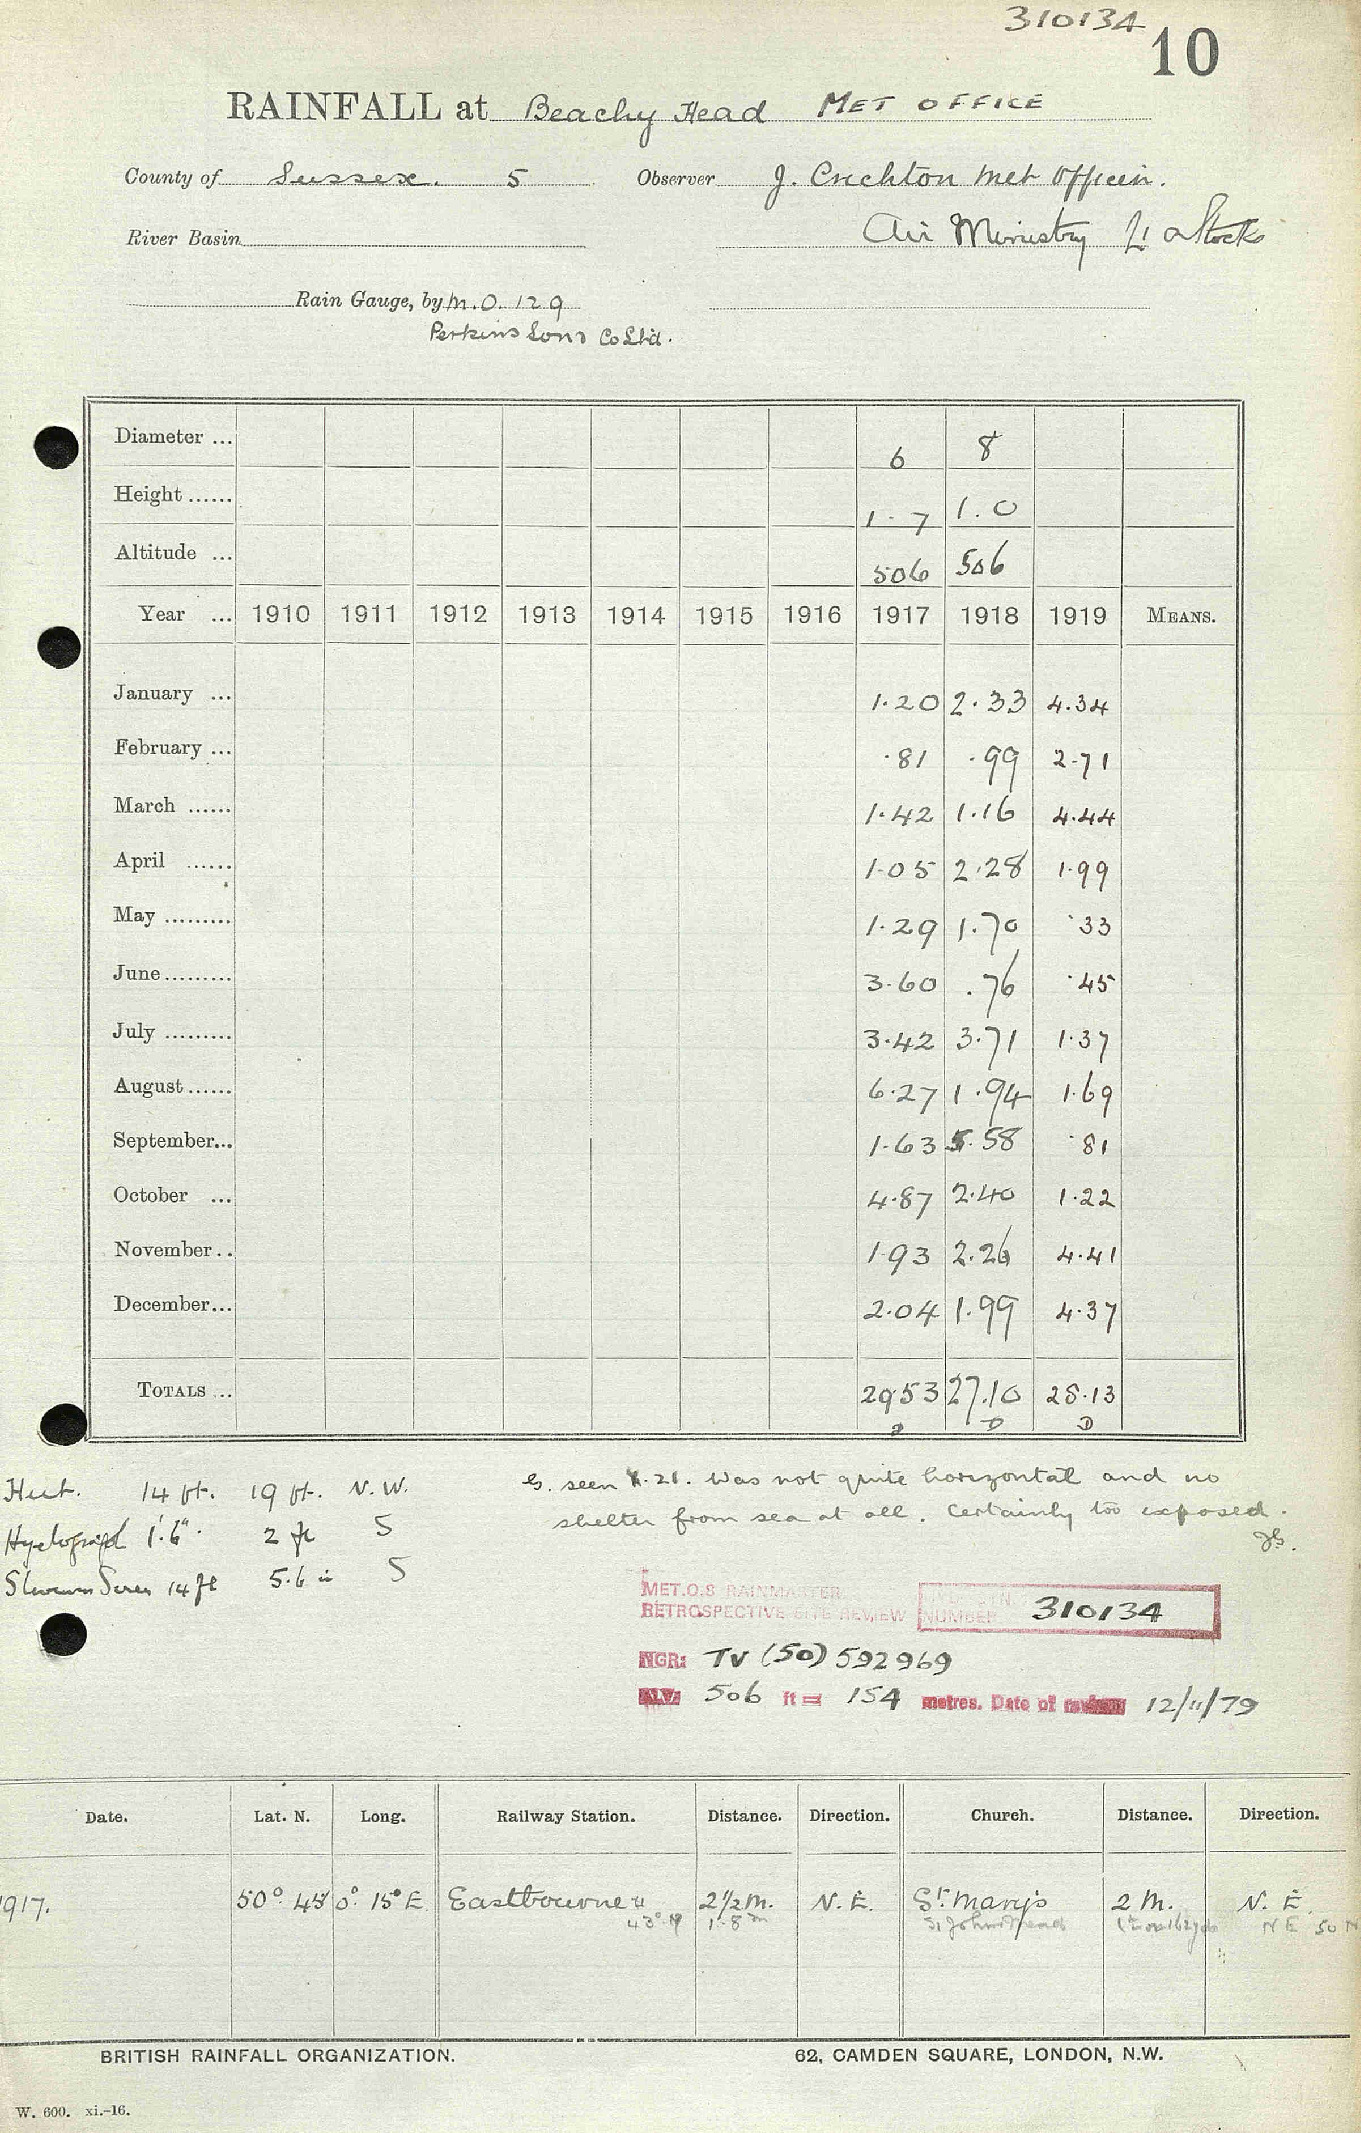 310134
10
RAINFALL at Beachy Head MET OFFICE
County of Sussex. 5 Observer J. Crichton Met Officer.
River Basin Air Ministry
Rain Gauge, by M.O. 129
Perkins Sons Co Ltd.
Diameter ... 6 8
Height ...... 1.7 1.0
Altitude ... 506 506
Year ... 1910 1911 1912 1913 1914 1915 1916 1917 1918 1919 MEANS.
January ... 1.20 2.33 4.34
February ... .81 .99 2.71
March ...... 1.42 1.16 4.44
April ...... 1.05 2.28 1.99
May ......... 1.29 1.70 .33
June ......... 3.60 .76 .45
July ......... 3.42 3.71 1.37
August ...... 6.27 1.94 1.69
September... 1.63 5.58 .81
October ... 4.87 2.40 1.22
November .. 1.93 2.26 4.41
December... 2.04 1.99 4.37
TOTALS ... 29.53 27.10 28.13
D D
Hut. 14 ft. 19 ft. N.W. G. seen . 21. Was not quite horizontal and no
Hyetograph 1'.6". 2 ft S shelter from sea at all. Certainly too exposed.
14 ft 5.6 in S
MET.O.8 RAINMASTER
RETROSPECTIVE SITE REVIEW NUMBER 310134
NGR: TV (50) 592969
ALT: 506 ft = 154 metres. Date of review 12/11/79
Date. Lat. N. Long. Railway Station. Distance. Direction. Church. Distance. Direction.
1917. 50° 45' 0° 15' E Eastbourne 2½ m. N.E. St Mary's 2 M. N.E.
1.8 m St Johns Meads NE 50 N
BRITISH RAINFALL ORGANIZATION. 62, CAMDEN SQUARE, LONDON, N.W.
W. 600. xi.-16.